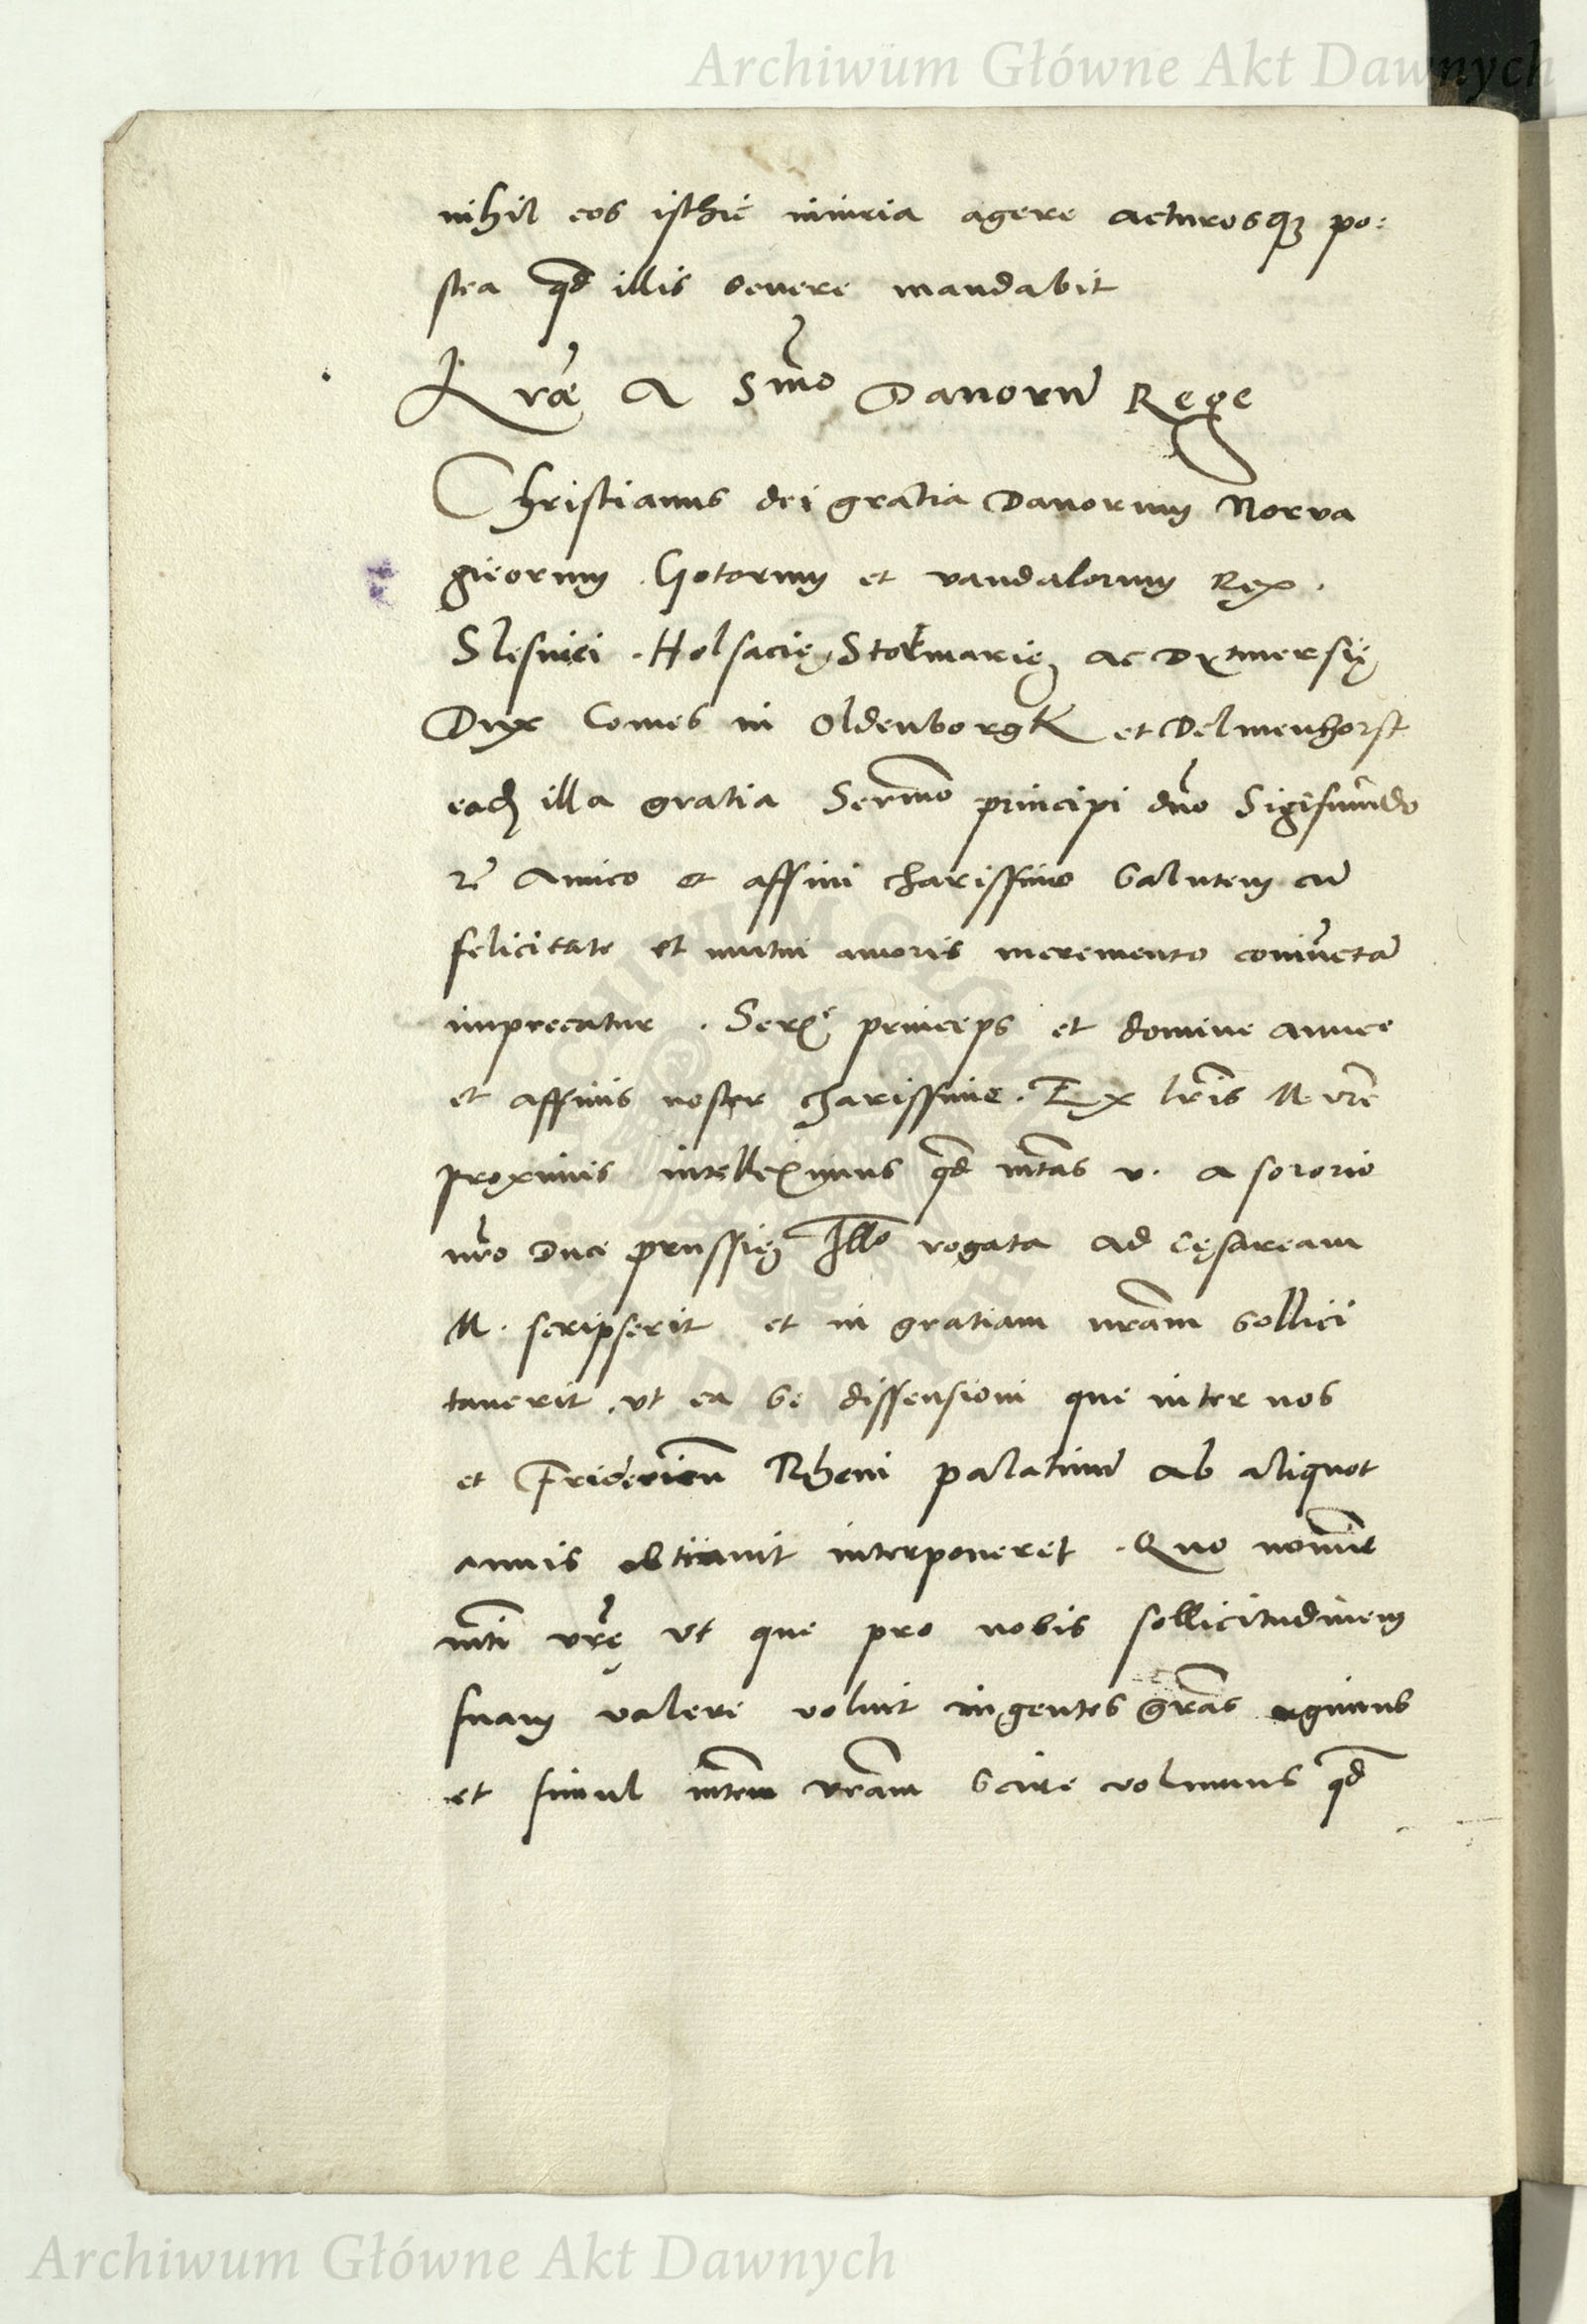 Archiwum Główne Akt Dawnych
nihil eos isthic iniuria agere acturosqz po:
stea qd illis severe mandabit
Lrae A Smo Danoru Rege
Christianus dei gratia Danorum Norva
gieorum . Gotorum et vandalorum Rex .
Slesvici . Holsacię Stormarię ac Dytmersię
Dux Comes in Oldenborgk et Delmenhorst
ead illa gratia Sermo principi dno Sigismundo
rc Amico et affini charissimo Salutem cu
felicitate et mutui amoris incremento coniuncta
imprecatur . Serme princeps et domine amice
et affinis noster charissime . Ex lris M vre
proximis intelleximus qd mtas v. a sororio
nro Duce prussię Illo rogata ad cęsaream
M. scripserit et in gratiam nram sollici
taverit . ut ea se dissensioni que inter nos
et Fridericu Rheni palatinu ab aliquot
annis obtinuit interponeret . Quo nomine
mti vrę ut que pro nobis sollicitudinem
suam valere voluit ingentes gras agimus
et simul mtem vram scire volumus qd
Archiwum Główne Akt Dawnych